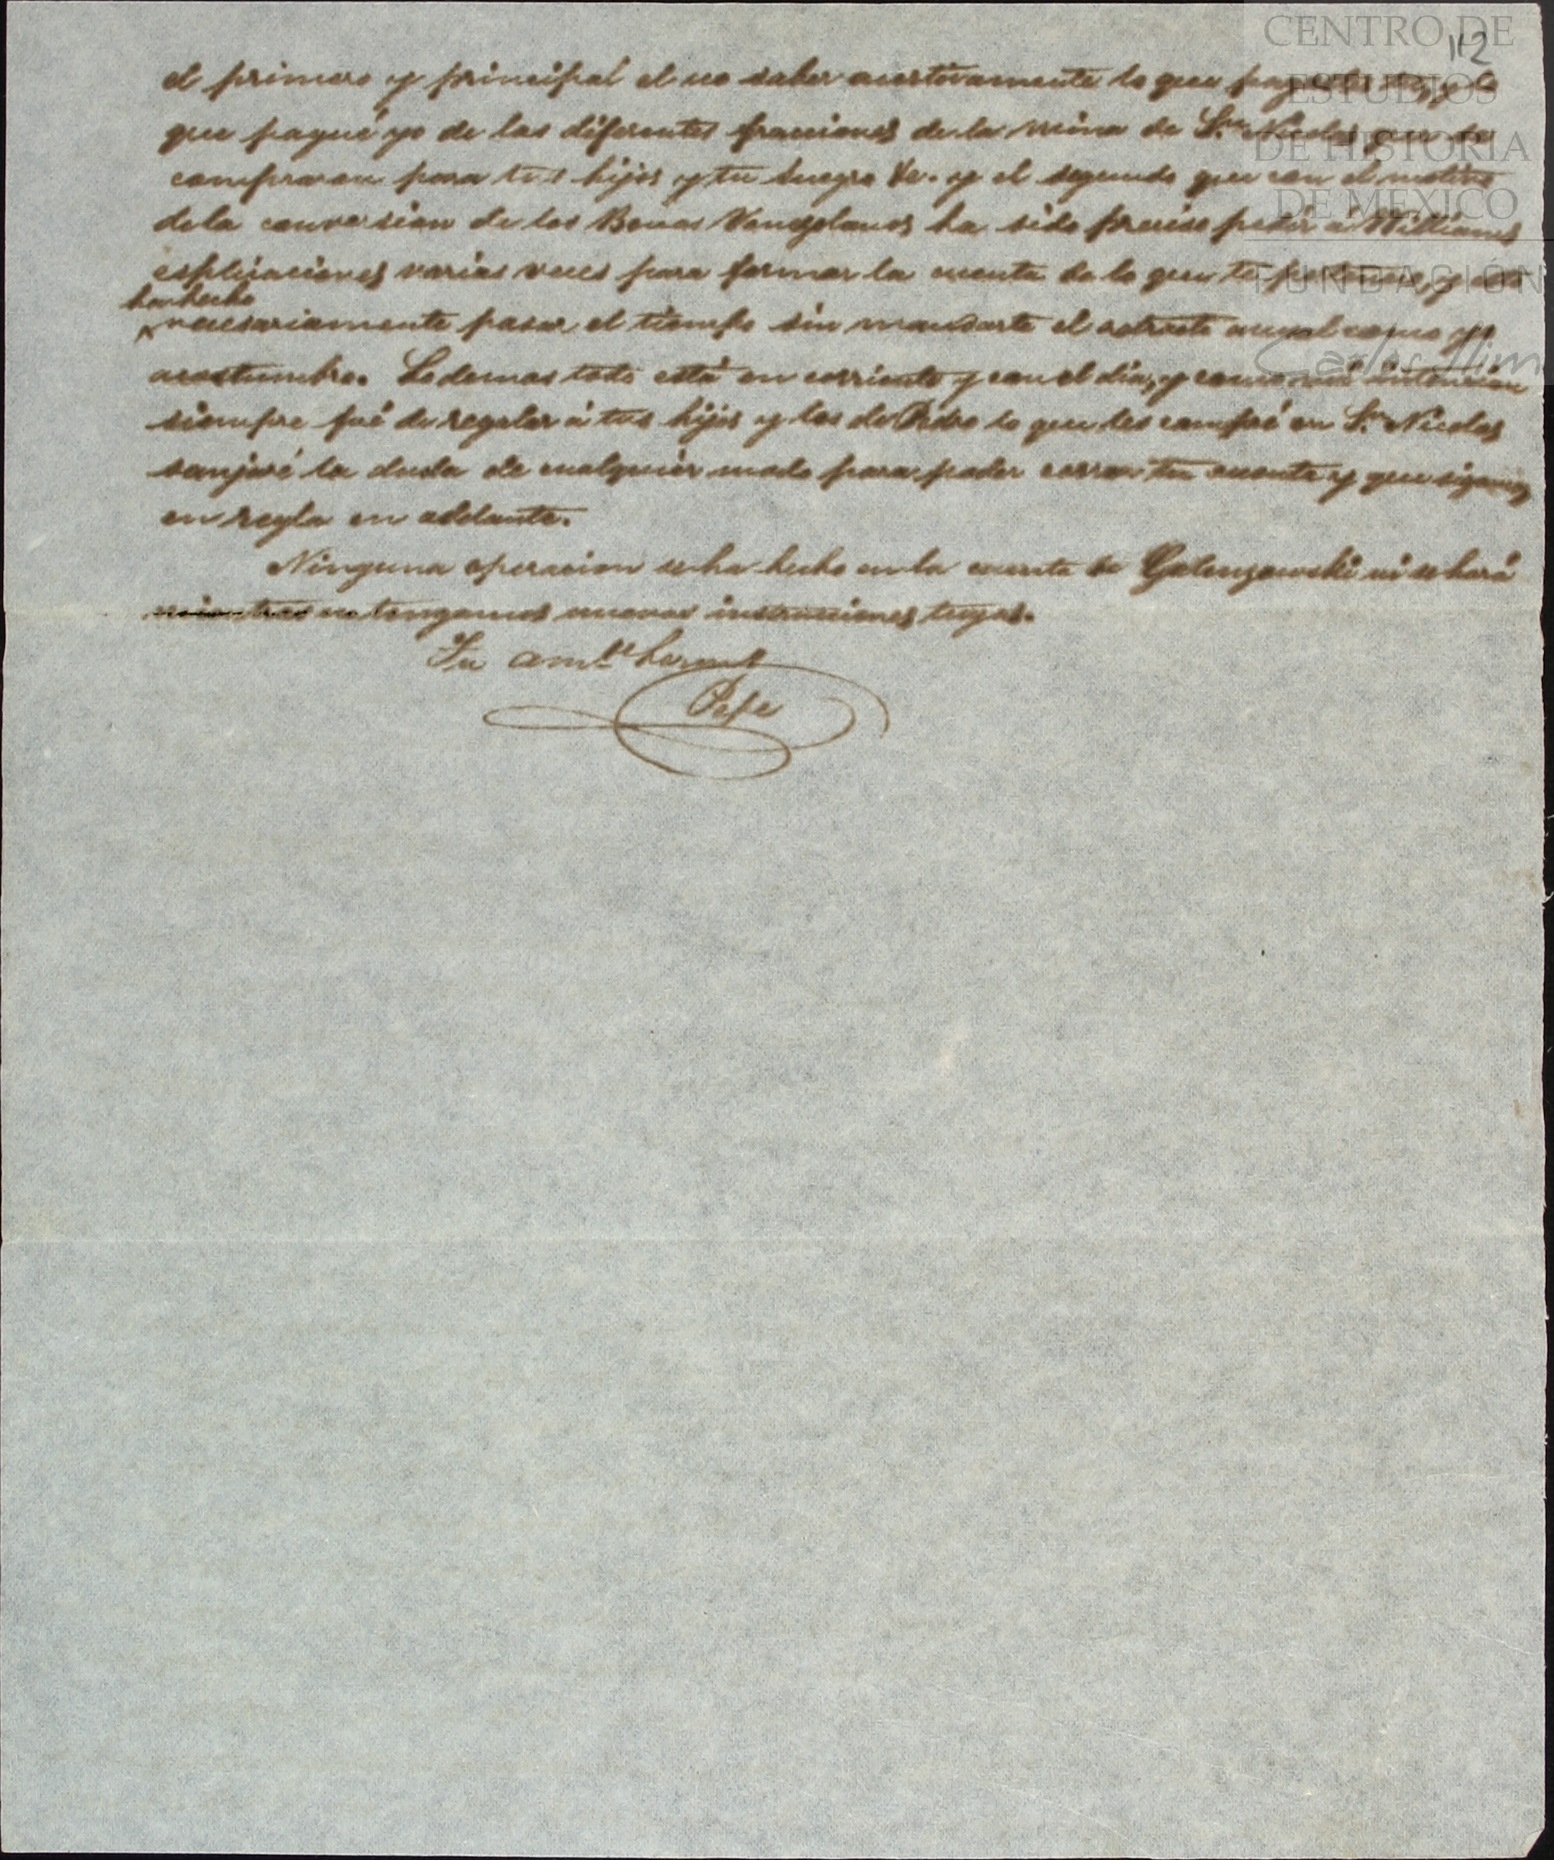 112
CENTRO DE
ESTUDIOS
DE HISTORIA
DE MEXICO
FUNDACIÓN
Carlos Slim
el primero y principal el no saber acertivamente lo que pagaste tu, y lo
que pagué yo de las diferentes fracciones de la mina de Sn. Nicolas que se
compraron para tus hijos y tu suegro Va. y el segundo que con el motivo
de la conversion de los Bonos Venezolanos ha sido preciso pedir á Williams
esplicaciones varias veces para formar la cuenta de lo que te pertenece, y
han hecho
necesariamente pasar el tiempo sin mandarte el estracto anual como yo
acostumbro. Lo demas todo está en corriente y con el dia, y como mi intencion
siempre fué de regalar á tus hijos y los de Pedro lo que les compré en Sn. Nicolas
sanjaré la duda de cualquier modo para poder cerrar tu cuenta y que sigamos
en regla en adelante.
Ninguna operacion se ha hecho en la cuenta de Galenzowski ni se hará
mientras no tengamos nuevas instrucciones tuyas.
Tu amte. herm
Pepe